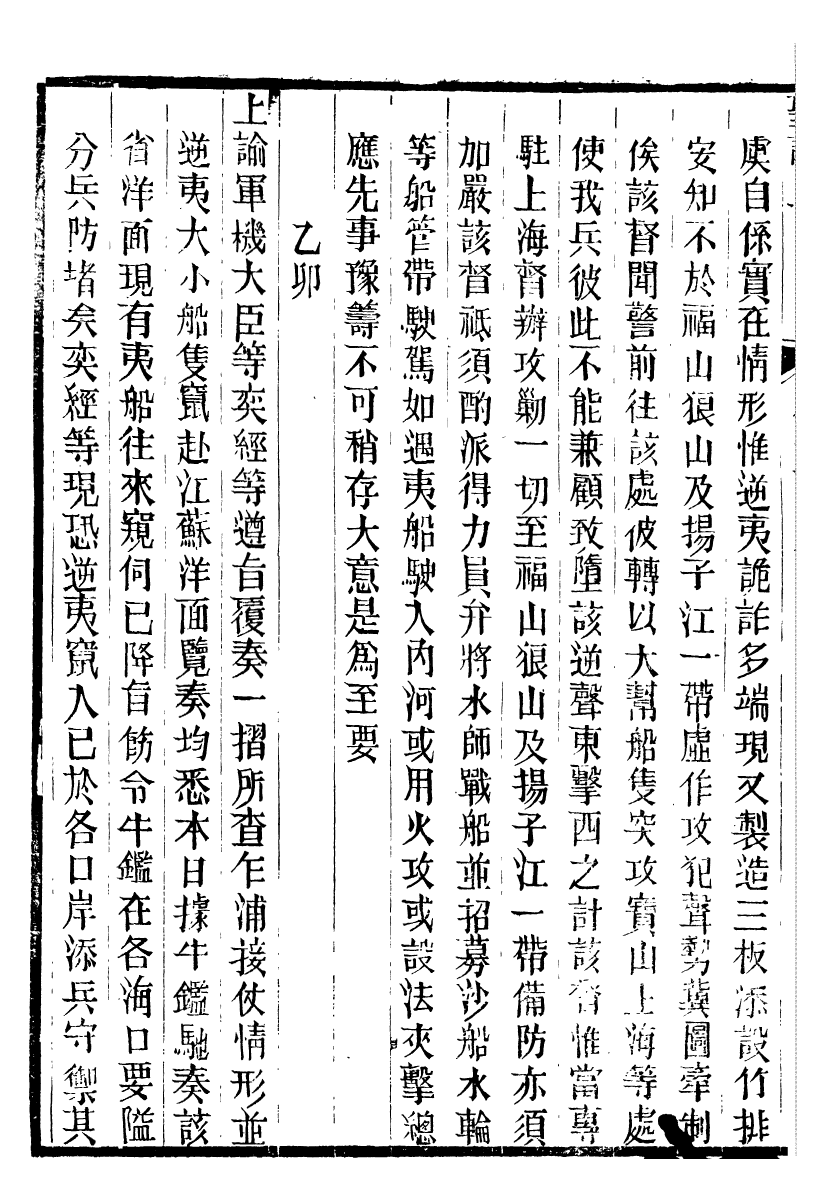 虞自係實在情形惟逆夷詭詐多端現又製造三板添設竹排
安知不於福山狼山及揚子江一帶虛作攻犯聲勢冀圖牽制
俟該督聞警前往該處彼轉以大幫船隻突攻寶山上海等處
使我兵彼此不能兼顧致墮該逆聲東擊西之計該督惟當專
駐上海督辦攻勦一切至福山狼山及揚子江一帶備防亦須
加嚴該督祇須酌派得力員弁將水師戰船並招募沙船水輪
等船管帶駛駕如遇夷船駛入內河或用火攻或設法夾擊總
應先事豫籌不可稍存大意是為至要
乙卯
上諭軍機大臣等奕經等遵旨覆奏一摺所查乍浦接仗情形並
逆夷大小船隻竄赴江蘇洋面覽奏均悉本日據牛鑑馳奏該
省洋面現有夷船往來窺伺已降旨飭令牛鑑在各海口要隘
分兵防堵矣奕經等現恐逆夷竄入已於各口岸添兵守禦其